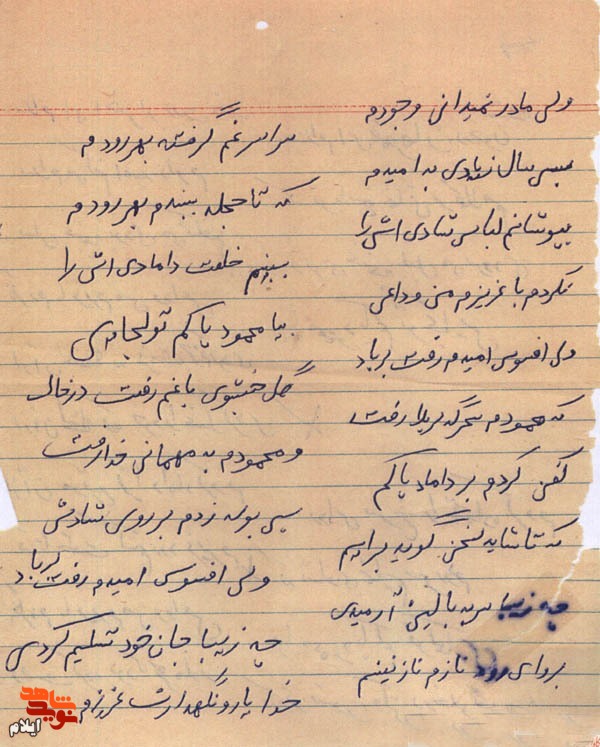 ولی مادر نمیدانی وجودم
سراسر غم گرفته بهر رودم
بسی سال زیادی به امیدم
که تا حجله ببندم بهر رودم
بپوشانم لباس شادی اش را
ببینم خلعت دامادی اش را
نکردم با عزیزم من وداعی
بیا محمود پاکم تو کجایی
ولی افسوس امیدم رفت برباد
گل خوشبوی باغم رفت در خاک
که محمودم سحرگه کربلا رفت
و محمودم به مهمانی خدا رفت
کفن کردم بر داماد پاکم
بسی بوسه زدم بر روی شادش
که تا شاید سخن گوید برایم
ولی افسوس امیدم رفت برباد
چه زیبا سر به بالین آرمیدی
چه زیبا جان خود تسلیم کردی
برو ای رود نازم نازنینم
خدا یار و نگهدارت عزیزم
نوید شاهد
ایلام